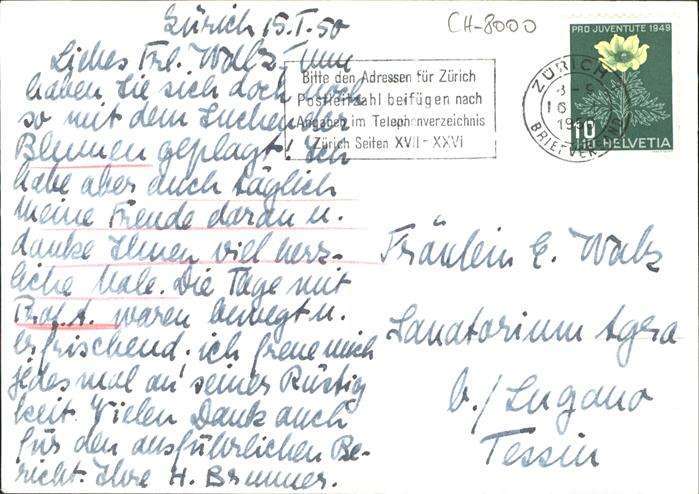 Zürich 15.I.50
CH-8000
Liebes Frl. Walz, nun
haben Sie sich doch noch
so mit dem Suchen der
Blumen geplagt! Ich
habe aber auch täglich
meine Freude daran u.
danke Ihnen viel herz-
liche Male. Die Tage mit
Prof. A. waren bewegt u.
erfrischend. ich freue mich
jedes mal an seiner Rüstig
keit. Vielen Dank auch
für den ausführlichen Be-
richt. Ihre H. Brunner.
Bitte den Adressen für Zürich
Postleitzahl beifügen nach
Angaben im Telephonverzeichnis
Zürich Seiten XVII - XXVI
ZÜRICH
BRIEFVERSAND
PRO JUVENTUTE 1949
10
HELVETIA
Fräulein E. Walz
Sanatorium Agra
b./Lugano
Tessin